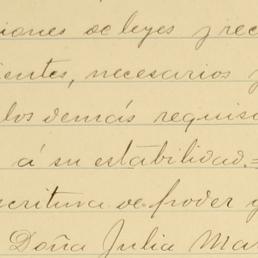 ciones de leyes y rec
ientes, necesarios y
los demás requiso
á su estabilidad.=
scritura de poder y
Doña Julia Ma